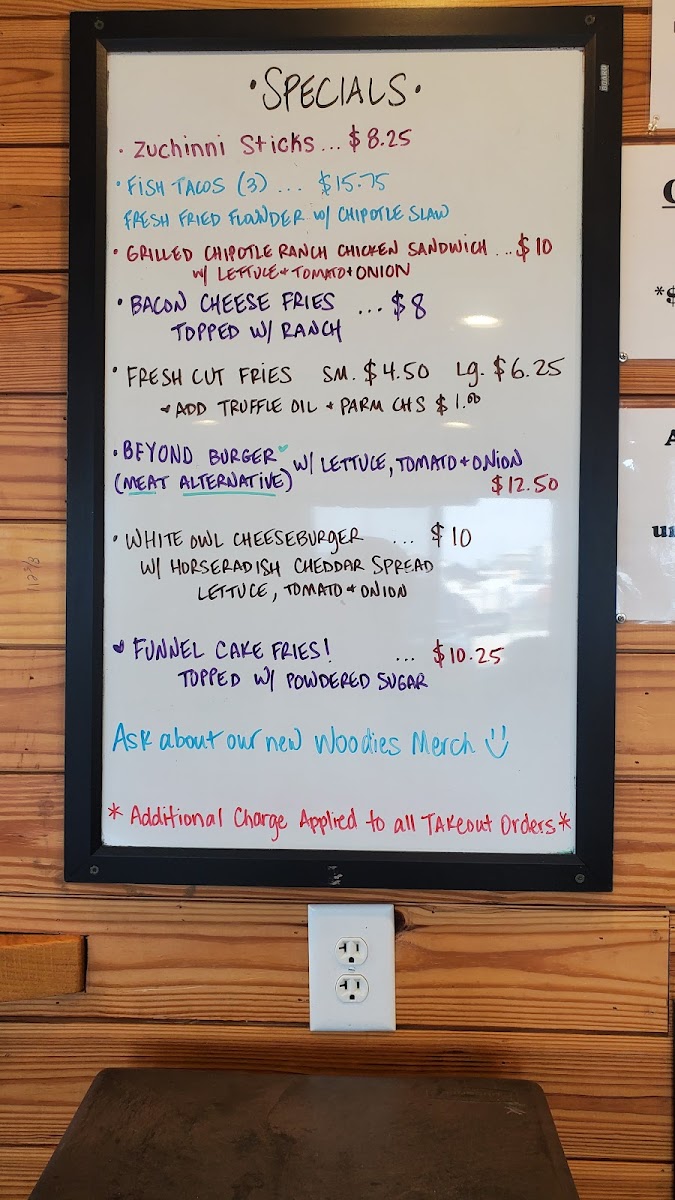 •SPECIALS•
• Zuchinni Sticks... $8.25
• FISH TACOS (3) ... $15.75
FRESH FRIED FLOUNDER W/ CHIPOTLE SLAW
• GRILLED CHIPOTLE RANCH CHICKEN SANDWICH ... $10
W/ LETTUCE + TOMATO + ONION
• BACON CHEESE FRIES ... $8
TOPPED W/ RANCH
• FRESH CUT FRIES SM. $4.50 Lg. $6.25
ADD TRUFFLE OIL + PARM CHS $1.00
• BEYOND BURGER W/ LETTUCE, TOMATO + ONION
(MEAT ALTERNATIVE) $12.50
• WHITE OWL CHEESEBURGER ... $10
W/ HORSERADISH CHEDDAR SPREAD
LETTUCE, TOMATO + ONION
♥ FUNNEL CAKE FRIES! ... $10.25
TOPPED W/ POWDERED SUGAR
Ask about our new Woodies Merch
* Additional Charge Applied to all TAKeout Orders *
BOARD